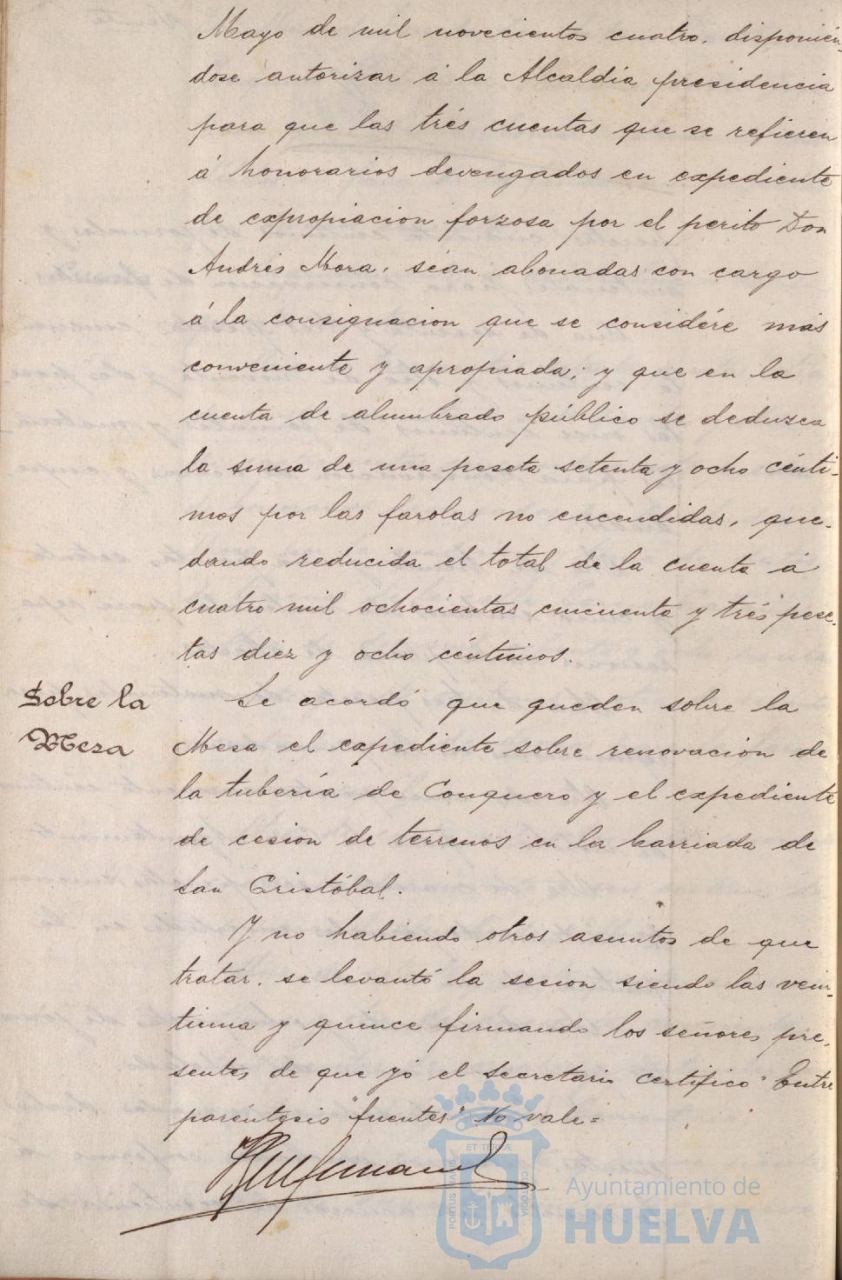 Mayo de mil novecientos cuatro. disponién-
dose autorizar á la Alcaldía presidencia
para que las trés cuentas que se refieren
á honorarios devengados en expediente
de expropiacion forzosa por el perito Don
Andrés Mora, séan abonadas con cargo
á la consignacion que se considére más
conveniente y apropiada; y que en la
cuenta de alumbrado público se deduzca
la suma de una peseta setenta y ocho cénti-
mos por las farolas no encendidas, que-
dando reducida el total de la cuenta á
cuatro mil ochocientas cincuenta y trés pese-
tas diez y ocho céntimos.
Sobre la
Mesa
Se acordó que queden sobre la
Mesa el expediente sobre renovacion de
la tubería de Conquero y el expediente
de cesion de terrenos en la barriada de
San Cristóbal.
Y no habiendo otros asuntos de que
tratar. se levantó la sesion siendo las vein-
tiuna y quince firmando los señores pre-
sentes de que yó el secretario certifico. Entre
paréntysis "fuentes" No vale=
PORTUS MARIS
ET TERRAE
CUSTODIA
Ayuntamiento de
HUELVA